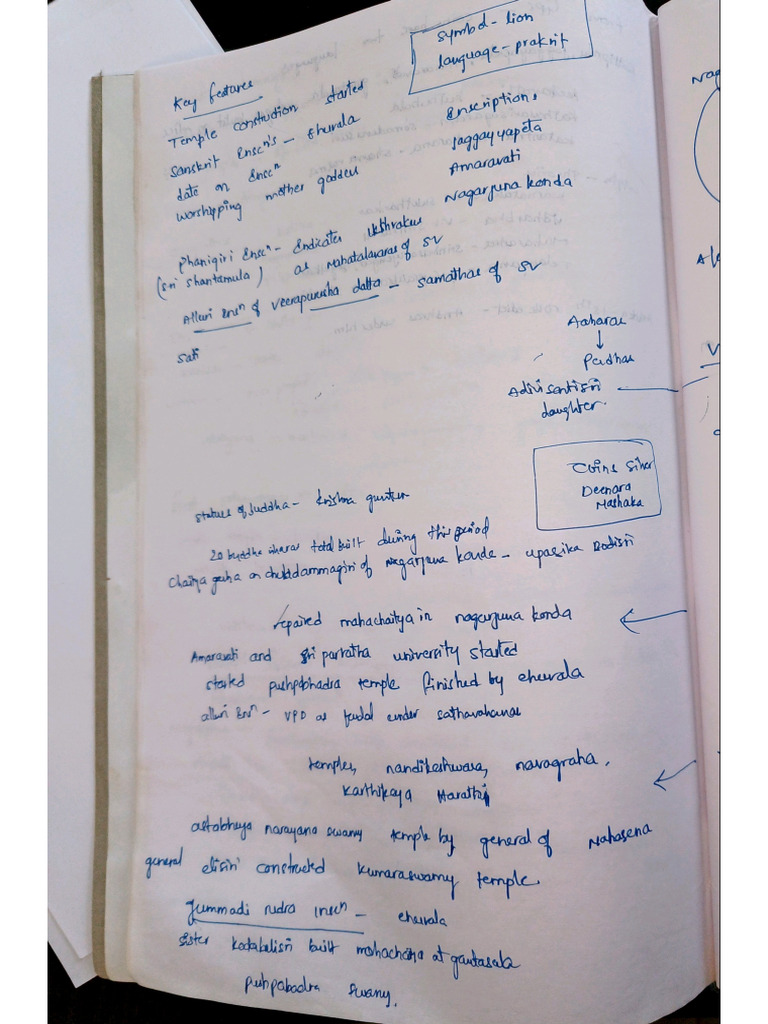 Symbol - lion
language - prakrit
Key features
Temple construction started
Sanskrit Enscⁿ's - Ehuvala
date on Enscⁿ
worshipping mother goddess
Enscriptions
Jaggayyapeta
Amaravati
Nagarjuna konda
Phanigiri Enscⁿ - Endicates Ikshvakus
(Sri Shantamula) as Mahatalavaras of SV
Alluri Ensⁿ of Veerapurusha datta - samathas of SV
Sati
Aaharas
↓
Adivi santisri
daughter.
Coins
Deenara
Mashaka
statues of buddha - krishna guntur
20 buddha viharas total built during this period
Chaitya gruha on of Nagarjuna konda - upasika Bodisri
repaired mahachaitya in nagarjuna konda
Amaravati and Sri parvatha university started
started pushpabhadra temple finished by ehuvala
alluri Ensⁿ - VPD as feudal under sathavahanas
temples, nandikeshwara, navagraha,
karthikeya
astabhuja narayana swamy temple by general of Mahasena
general elisiri constructed kumaraswamy temple
Gummadi rudra inscⁿ - ehuvala
sister Kodabalisri built mahachaitya at gantasala
pushpabadra swamy.
Nag
V